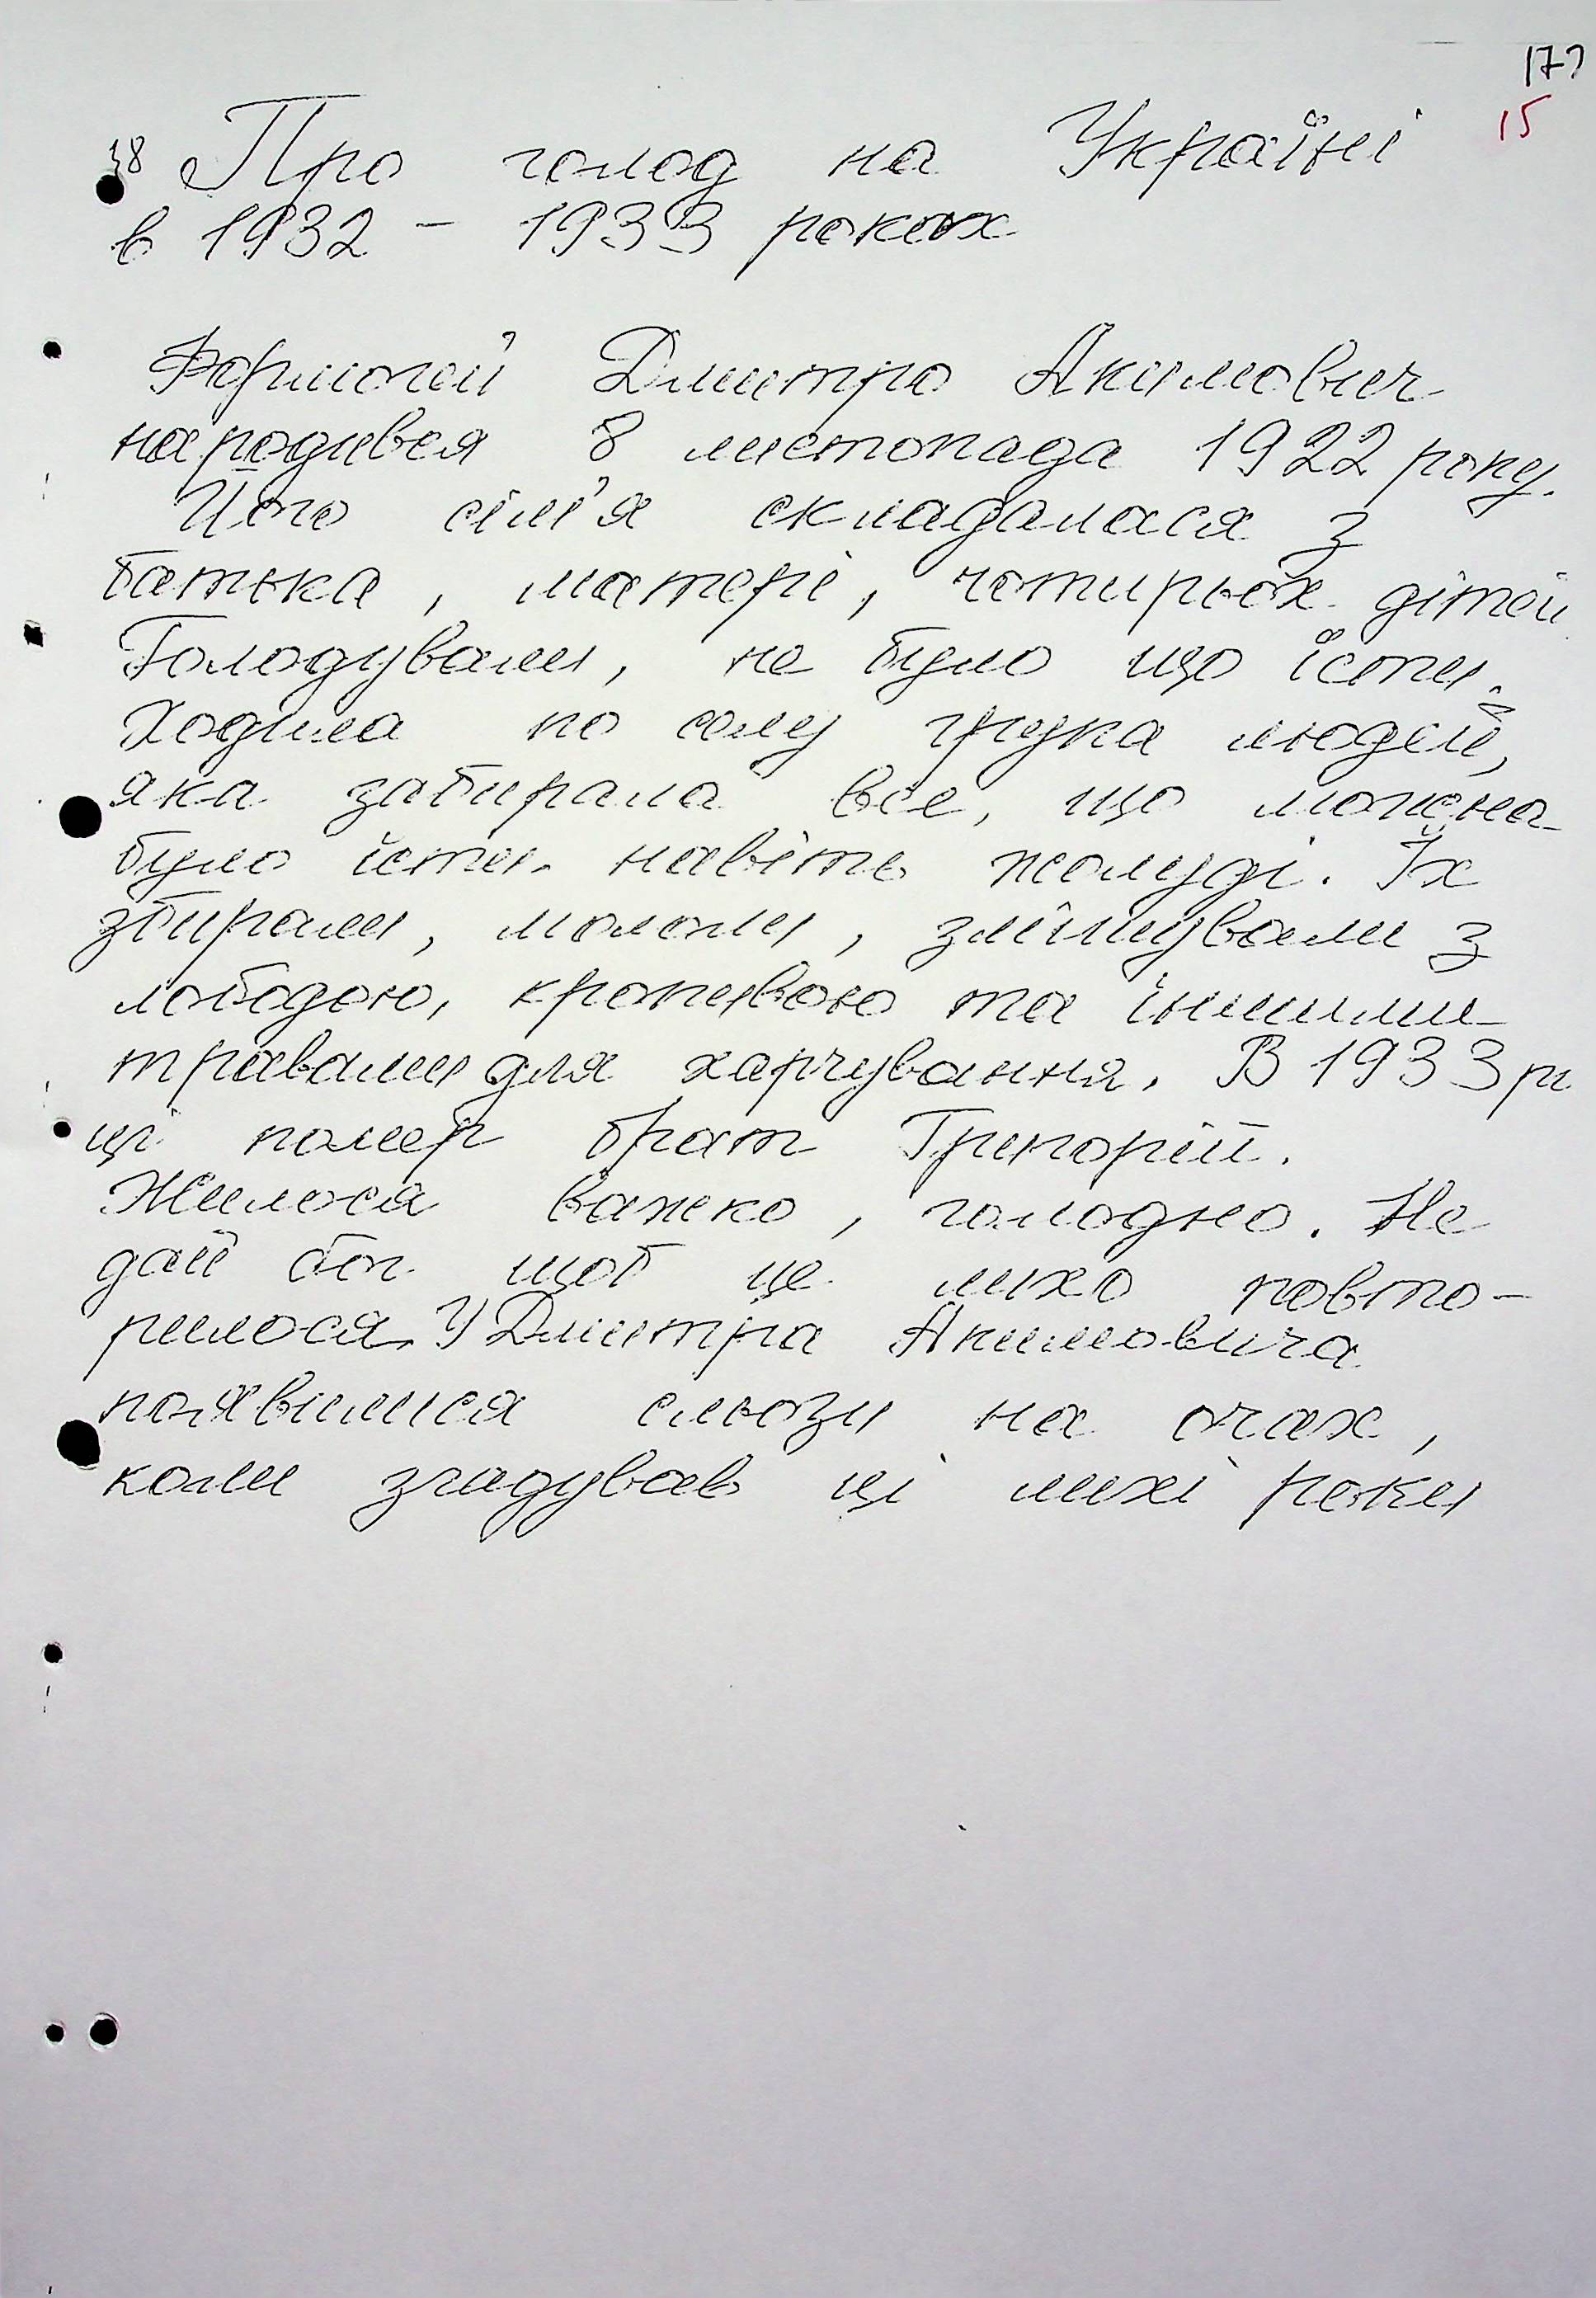 15
Про голод на Україні
в 1932 - 1933 роках
Дмитро Акимович
народився 8 листопада 1922 року.
Його сім'я складалася з
батька, матері, чотирьох дітей
Голодували, не було що їсти.
Ходила по селу група людей,
яка забирала все, що можна
було їсти. навіть жолуді. Їх
збирали, мололи, змішували з
лободою, кропивою та іншими
травами для харчування. В 1933 ро
ці помер брат Григорій.
Жилося важко, голодно. Не
дай бог щоб це лихо повто-
рилося. У Дмитра Акимовича
появилися сльози на очах,
коли згадував ці лихі роки